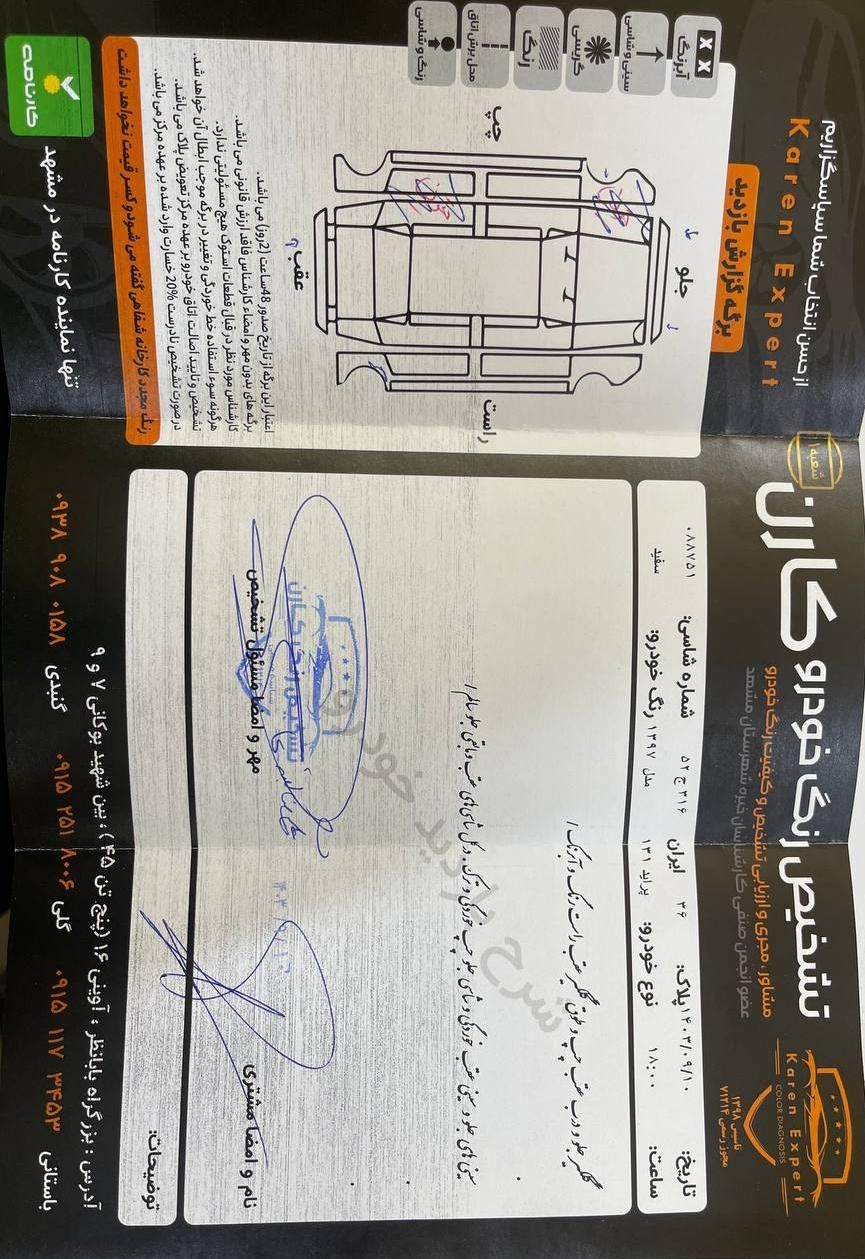 از حسن انتخاب شما سپاسگزاریم
Karen Expert
شعبه ۱
تشخیص رنگ خودرو کارن
مشاور، مجری و ارزیابی تشخیص و کیفیت رنگ خودرو
عضو انجمن صنفی کارشناسان خبره شهرستان مشهد
Karen Expert
COLOR DIAGNOSIS
تاسیس ۱۳۹۸
مجوز رسمی ۷۱۲۱۴
برگه گزارش بازدید
X X
آبرنگ
سینی و شاسی
گریسی
رنگ
محل برش اتاق
رنگ و شاسی
چپ
جلو
عقب
راست
اعتبار این برگه از تاریخ صدور 48ساعت (2روز) می باشد.
برگه های بدون مهر و امضاء کارشناس فاقد ارزش قانونی می باشد.
کارشناس مورد نظر در قبال قطعات استوک هیچ مسئولیتی ندارد.
هرگونه سوء استفاده خط خوردگی و تغییر در برگه موجب ابطال آن خواهد شد.
تشخیص و تایید اصالت اتاق خودرو بر عهده مرکز تعویض پلاک می باشد.
درصورت تشخیص نادرست 20% خسارت وارد شده بر عهده مرکز می باشد.
رنگ مجدد کارخانه شفاهی گفته می شود و کسر قیمت نخواهد داشت
کارنامه
تنها نماینده کارنامه در مشهد
تاریخ: ۱۴۰۳/۰۹/۱۰ پلاک: ۳۶ ایران ۳۱۶ ج ۵۲ شماره شاسی: ۰۸۸۷۵۱
ساعت: ۱۸:۰۰ نوع خودرو: پراید ۱۳۱ مدل ۱۳۹۷ رنگ خودرو: سفید
شرح بازدید خودرو
گلگیر جلو و درب عقب چپ و طوق گلگیر عقب راست رنگ و آبرنگ /
سینی های جلو و سینی عقب خوردگی و شاسی جلو چپ خوردگی و ترک. و کل شاسی های عقب و مابقی جلو سالم /
نام و امضا مشتری
مهر و امضا مسئول تشخیص
تشخیص رنگ کارن
توضیحات:
آدرس : بزرگراه بابانظر ، آوینی ۱۶ (پنج تن ۴۵) ، بین شهید بوکانی ۷ و ۹
باستانی ۰۹۱۵ ۱۱۷ ۳۴۵۳ گلی ۰۹۱۵ ۲۵۱ ۸۰۰۶ گنبدی ۰۹۳۸ ۹۰۸ ۰۱۵۸